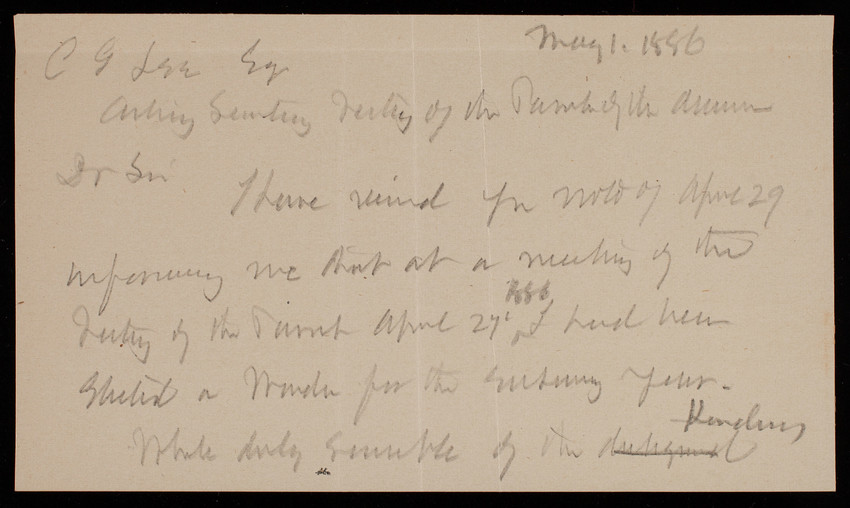 May 1. 1886
C G Lee Esq
Acting Secretary Vestry of the Parish of the Ascension
Dr Sir
I have received yr note of April 29
informing me that at a meeting of the
Vestry of the Parish April 27' 1886 I had been
Elected a Warden for the Ensuing Year.
While duly sensible of the Kindness